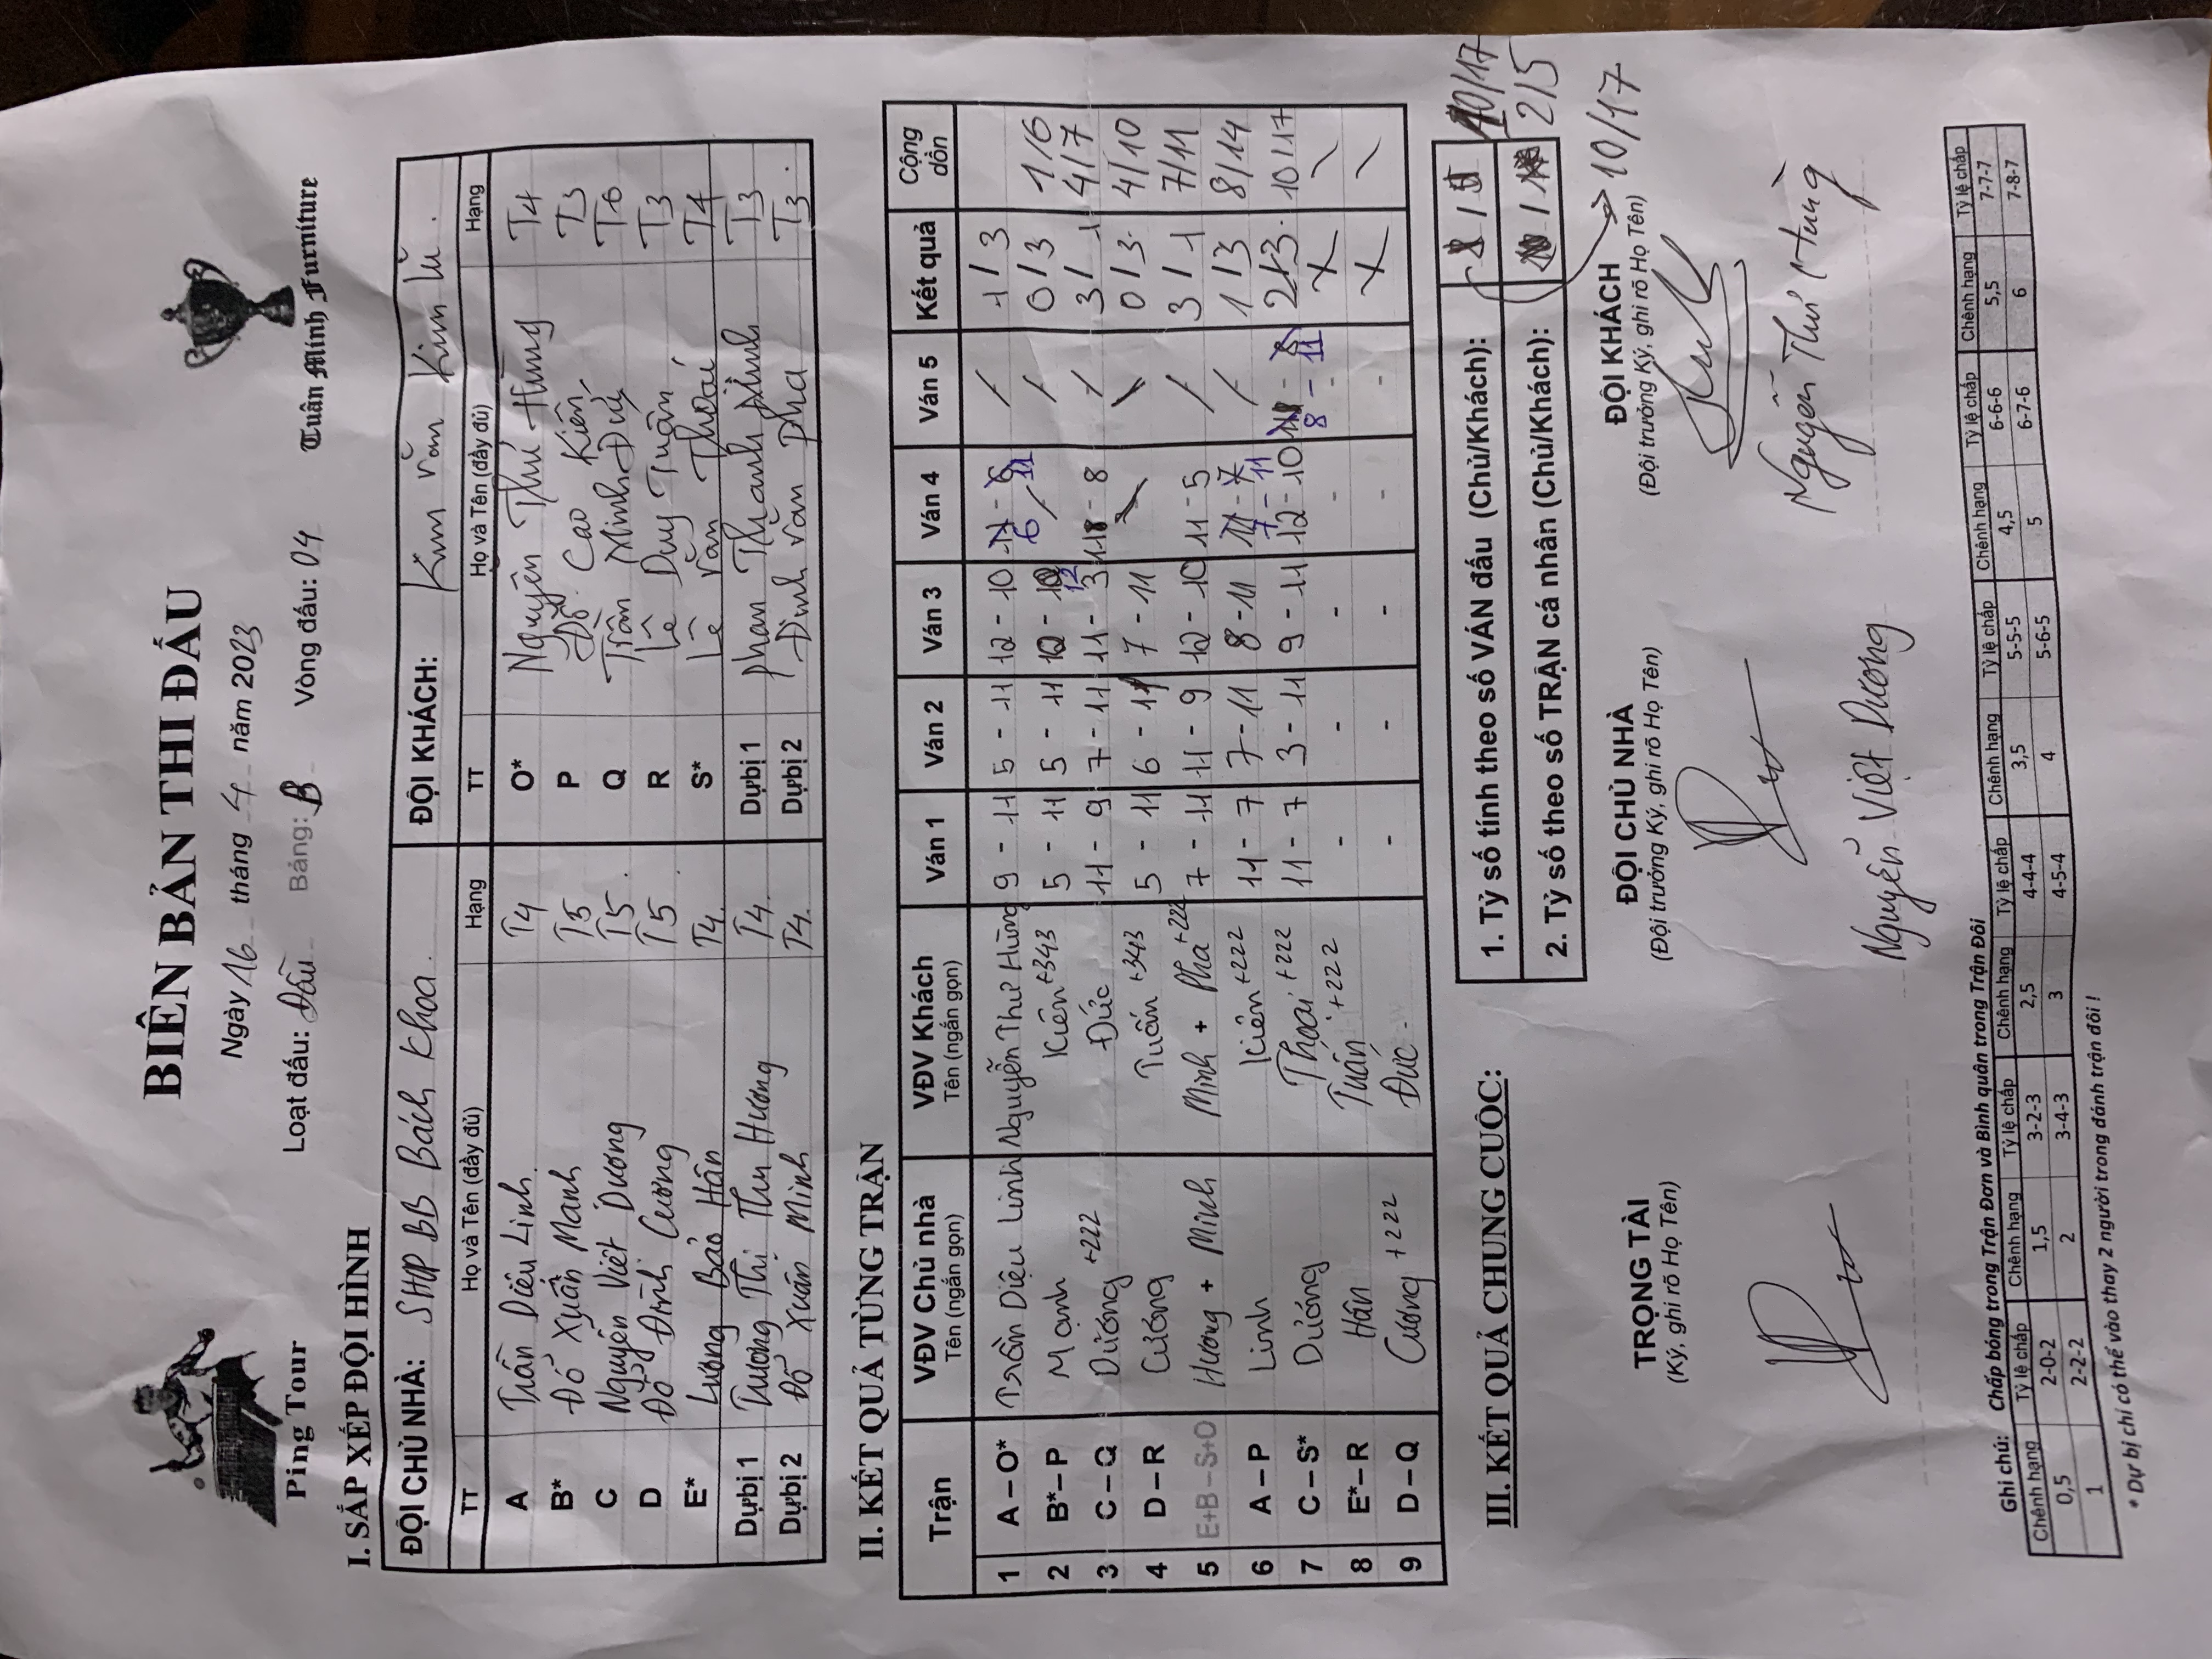 Ping Tour
BIÊN BẢN THI ĐẤU
Ngày 16 tháng 4 năm 2023
Loạt đấu: Đấu Bảng: B Vòng đấu: 04
Tuân Minh Furniture
I. SẮP XẾP ĐỘI HÌNH
ĐỘI CHỦ NHÀ: SHOP BB Bách Khoa ĐỘI KHÁCH: Kim văn Kim lũ
TT Họ và Tên (đầy đủ) Hạng TT Họ và Tên (đầy đủ) Hạng
A Trần Diệu Linh T4 O* Nguyễn Thư Hùng T4
B* Đỗ Xuân Mạnh T5 P Đỗ Cao Kiên T3
C Nguyễn Việt Dương T5 Q Trần Minh Đức T6
D Đỗ Đình Cương T5 R Lê Duy Tuấn T3
E* Lương Bảo Hân T4 S* Lê Văn Thoại T4
Dự bị 1 Trương Thị Thu Hương T4 Dự bị 1 Phan Thanh Minh T3
Dự bị 2 Đỗ Xuân Minh T4 Dự bị 2 Đinh Văn Pha T3
II. KẾT QUẢ TỪNG TRẬN
Trận VĐV Chủ nhà VĐV Khách Ván 1 Ván 2 Ván 3 Ván 4 Ván 5 Kết quả Cộng dồn
Tên (ngắn gọn) Tên (ngắn gọn)
1 A – O* Trần Diệu Linh Nguyễn Thư Hùng 9 - 11 5 - 11 12 - 10 6 - 11 / 1/3
2 B* – P Mạnh Kiên +343 5 - 11 5 - 11 10 - 12 / / 0/3 1/6
3 C – Q Dương +222 Đức 11 - 9 7 - 11 11 - 3 11 - 8 / 3/1 4/7
4 D – R Cương Tuấn +343 5 - 11 6 - 11 7 - 11 \ \ 0/3 4/10
5 E+B – S+O Hương + Minh Minh + Pha +222 7 - 11 11 - 9 12 - 10 11 - 5 / 3/1 7/11
6 A – P Linh Kiên +222 11 - 7 7 - 11 8 - 11 7 - 11 / 1/3 8/14
7 C – S* Dương Thoại +222 11 - 7 3 - 11 9 - 11 12 - 10 8 - 11 2/3 10/17
8 E* – R Hân Tuấn +222 - - - - - X \
9 D – Q Cương +222 Đức - - - - - X \
III. KẾT QUẢ CHUNG CUỘC:
1. Tỷ số tính theo số VÁN đấu (Chủ/Khách): / 10/17
2. Tỷ số theo số TRẬN cá nhân (Chủ/Khách): / 2/5
10/17
TRỌNG TÀI ĐỘI CHỦ NHÀ ĐỘI KHÁCH
(Ký, ghi rõ Họ Tên) (Đội trưởng Ký, ghi rõ Họ Tên) (Đội trưởng Ký, ghi rõ Họ Tên)
Nguyễn Việt Dương Nguyễn Thư Hùng
Ghi chú: Chấp bóng trong Trận Đơn và Bình quân trong Trận Đôi
Chênh hạng Tỷ lệ chấp Chênh hạng Tỷ lệ chấp Chênh hạng Tỷ lệ chấp Chênh hạng Tỷ lệ chấp Chênh hạng Tỷ lệ chấp Chênh hạng Tỷ lệ chấp
0,5 2-0-2 1,5 3-2-3 2,5 4-4-4 3,5 5-5-5 4,5 6-6-6 5,5 7-7-7
1 2-2-2 2 3-4-3 3 4-5-4 4 5-6-5 5 6-7-6 6 7-8-7
* Dự bị chỉ có thể vào thay 2 người trong đánh trận đôi !